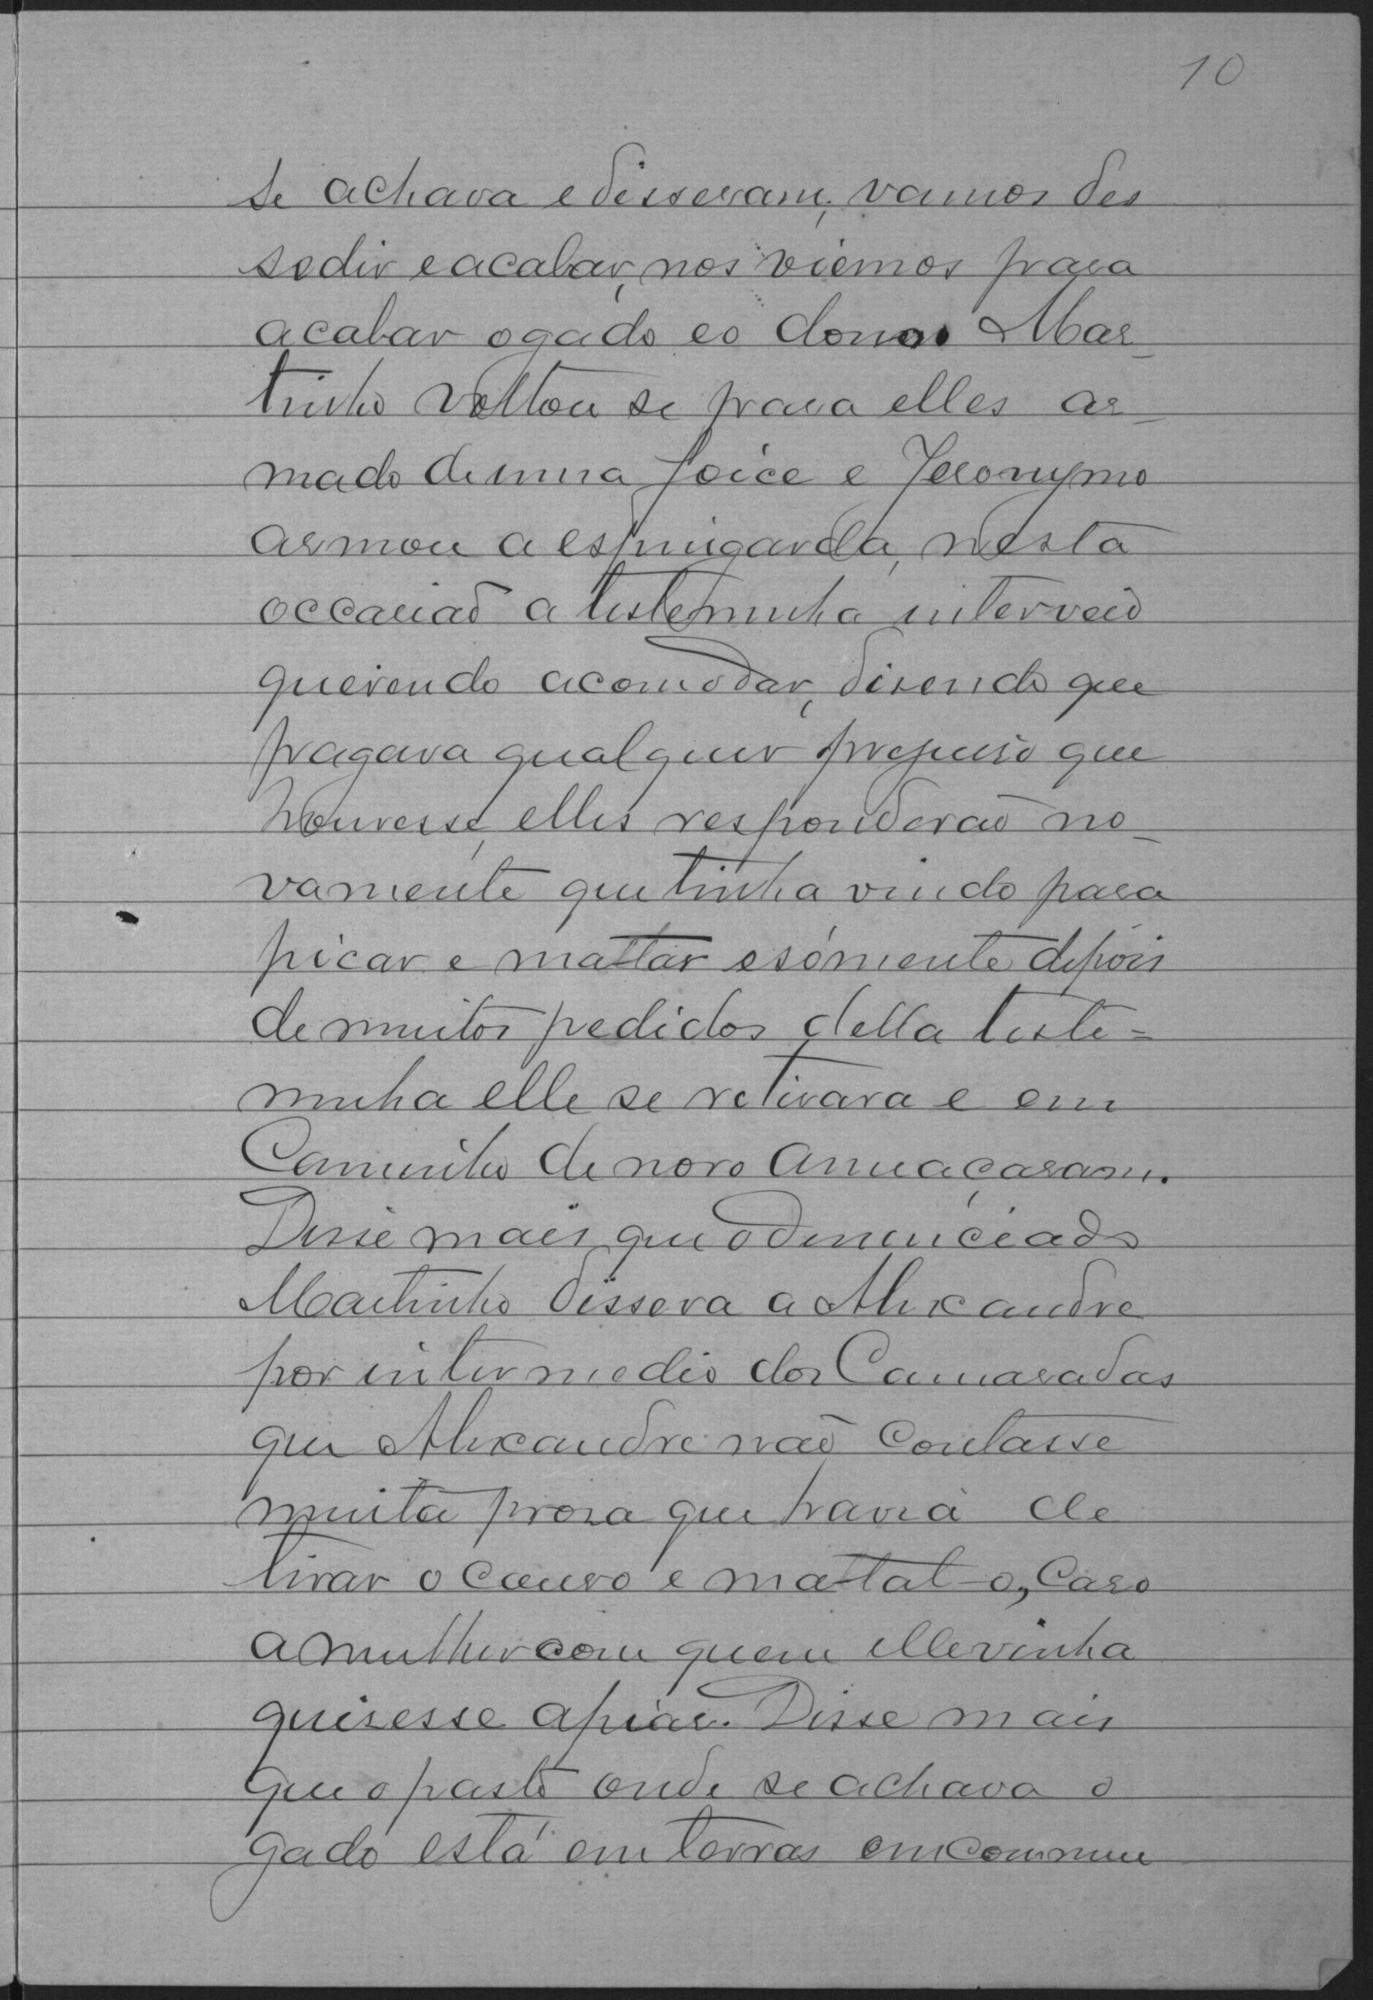 10
se achava e disseram, vamos des
sedir e acabar, nos viemos para
acabar o gado e o dono Mar_
tinho voltou se para elles ar_
mado de uma foice e Jeronymo
armou a espingarda, nesta
occasiaõ a testemunha interveio
querendo acomodar, disendo que
pagava qualquer prejuiso que
houvesse, elles responderaõ no_
vamente que tinha vindo para
picar e mattar e sómente depois
de muitos pedidos della teste=
munha elle se retirara e em
Caminho de novo ameaçaram.
Disse mais que o denunciado
Martinho dissera a Alexandre
por intermedio dos Camaradas
que Alexandre naõ Contasse
muita prosa que havia de
tirar o couro e mattal-o, Caso
a mulher com quem elle vinha
quisesse apiar. Disse mais
que o pasto onde se achava o
gado está em terras em commum